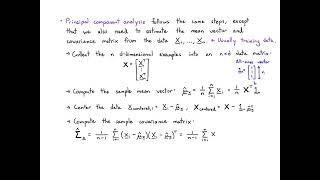 • Principal component analysis follows the same steps, except
that we also need to estimate the mean vector and
covariance matrix from the data X₁, ..., Xₙ. ← Usually training data.
→ Collect the n d-dimensional examples into an n×d data matrix:
All-ones vector
X = [X₁ᵀ ⋮ Xₙᵀ]
→ Compute the sample mean vector: μ̂_X = 1/n Σᵢ₌₁ⁿ Xᵢ = 1/n Xᵀ 1
→ Center the data X_centered,i = Xᵢ - μ̂_X X_centered = X - 1 μ̂_Xᵀ
→ Compute the sample covariance matrix:
Σ̂_X = 1/(n-1) Σᵢ₌₁ⁿ (Xᵢ - μ̂_X)(Xᵢ - μ̂_X)ᵀ = 1/(n-1) Σᵢ₌₁ⁿ X